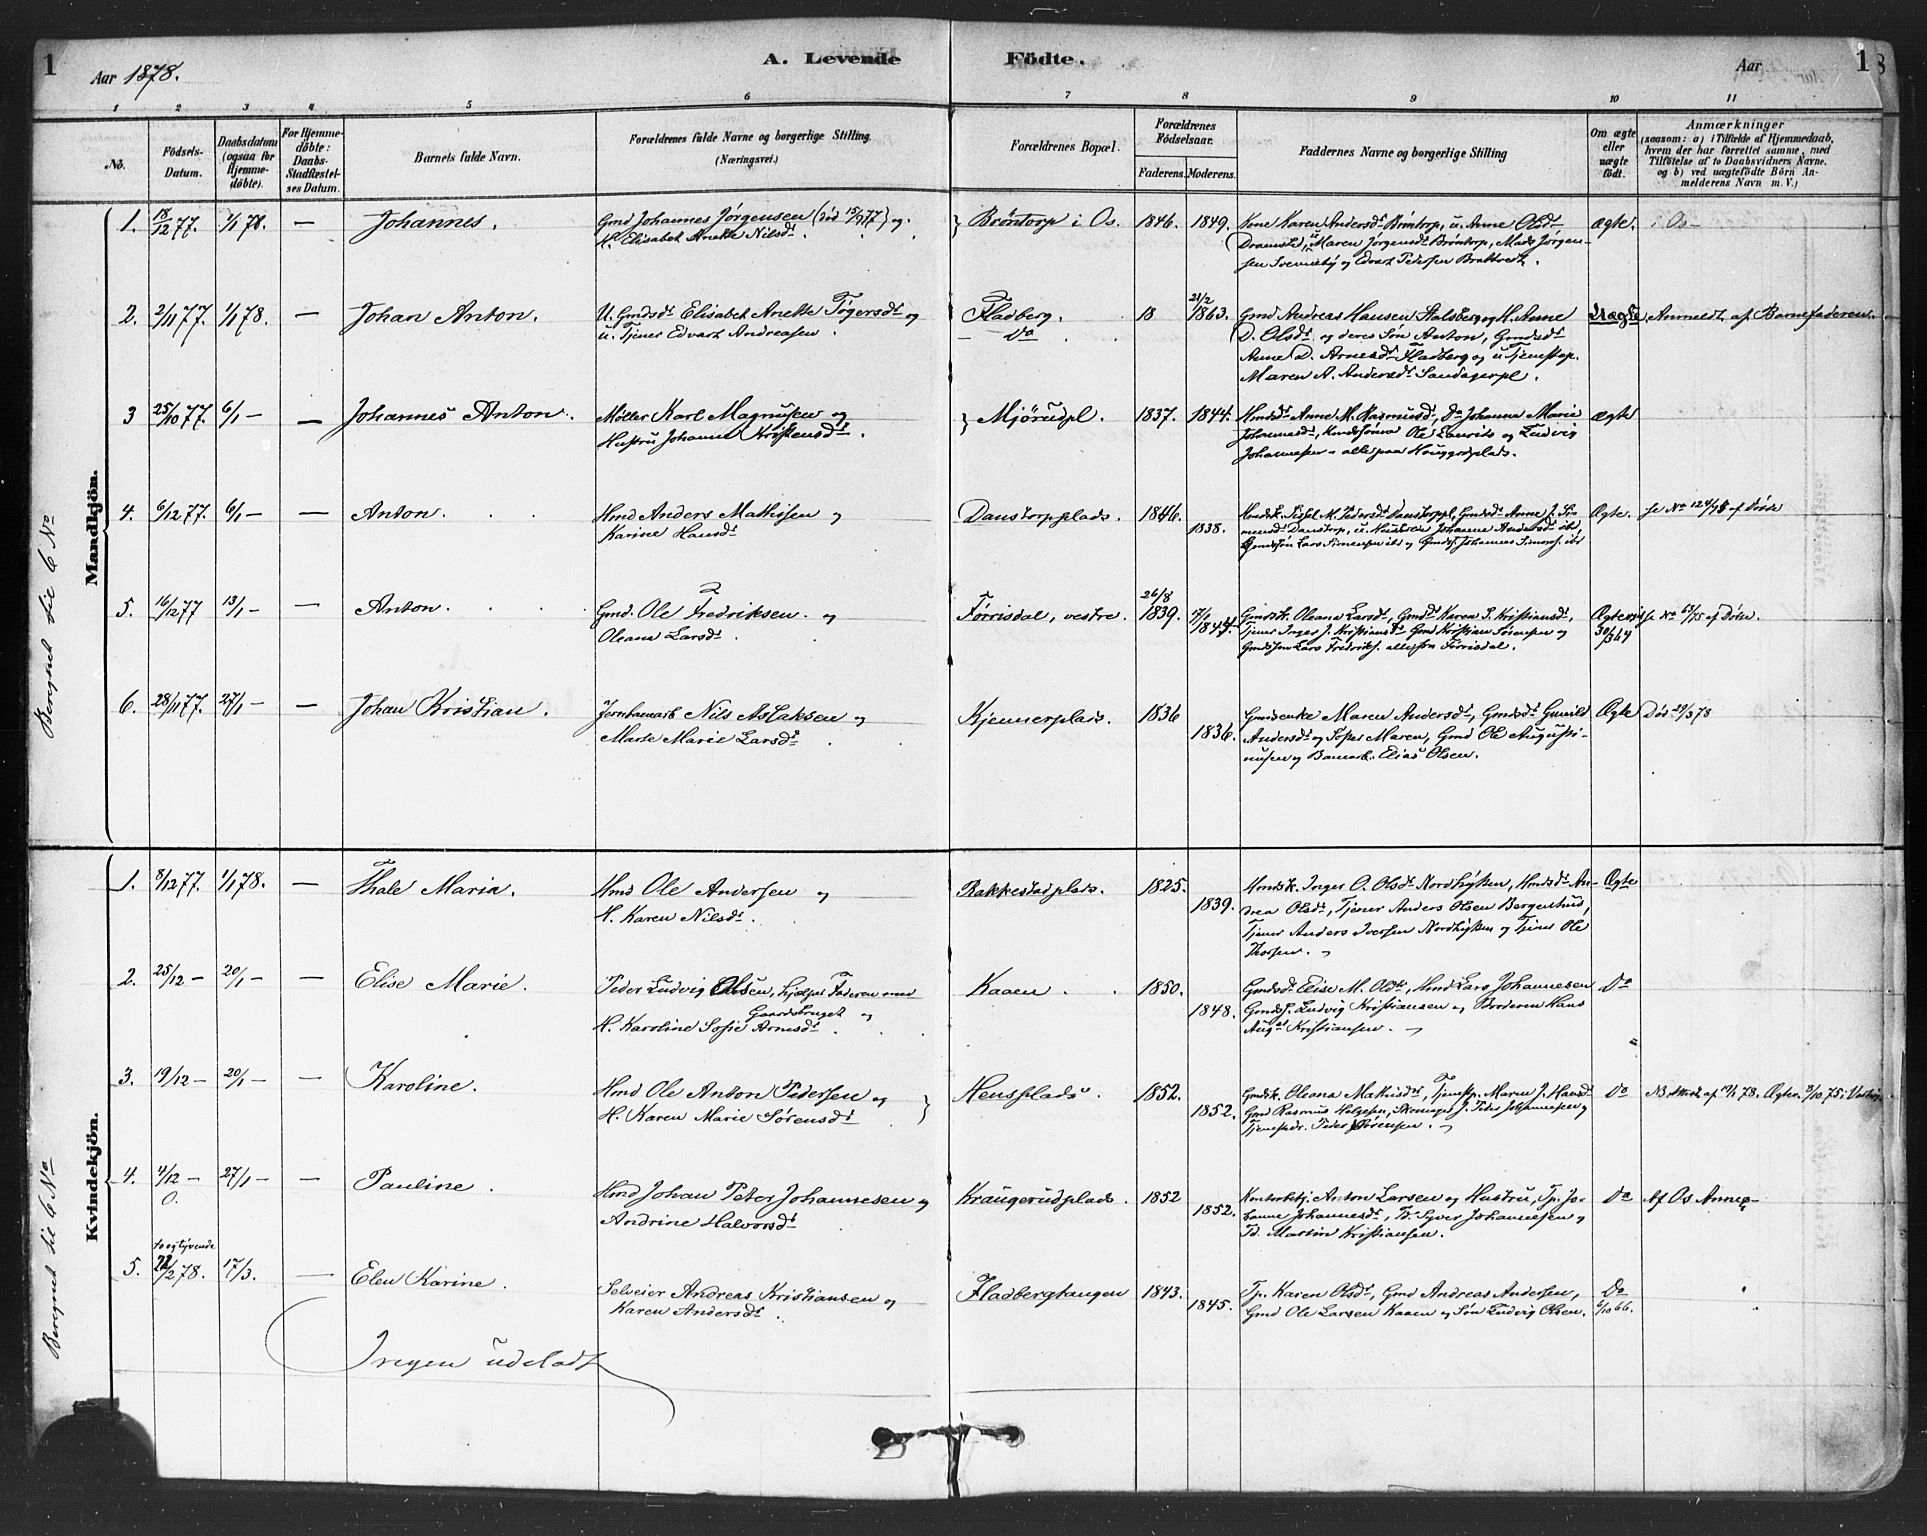 1
Aar 1878.
A. Levende Födte.
Aar
18
1 2 3 4 5 6 7 8 9 10 11
No.
Födsels-Datum.
Daabsdatum (ogsaa for Hjemmedöbte).
For Hjemmedöbte: Daabs-Stadfæstelses Datum.
Barnets fulde Navn.
Forældrenes fulde Navne og borgerlige Stilling. (Næringsvei.)
Forældrenes Bopæl.
Forældrenes Födselsaar.
Faderens. Moderens.
Faddernes Navne og borgerlige Stilling
Om ægte eller uægte födt.
Anmærkninger
(saasom: a) i Tilfælde af Hjemmedaab, hvem der har forrettet samme, med Tilföielse af to Daabsvidners Navne. og b) ved uægtefödte Börn Anmelderens Navn m. V.)
Mandkjön.
Beregnet til 6 No
1. 18/12 77. 1/1 78. — Johannes. Gmd Johannes Jørgensen (død 15/9 77) og
H. Elisabet Anette Nilsdt.
Brøntorp i Os. 1846. 1849. Kone Karen Andersdt Brøntorp, u. Anne Olsdt
Dramstd, u. Maren Jørgensdt Brøntorp, Mads Jørgen-
sen Svenneby og Edvart Pedersen Brattvedt.
ægte. i Os —
2. 2/11 77. 1/1 78. — Johan Anton. U. Gmdsdt Elisabet Anette Tøgersdt og
u. Tjener Edvart Andreasen.
Fladberg. Do 18 21/2 1863. Gmd Andreas Hansen Stalsberg og H. Anne
D. Olsdt og deres Søn Anton, Gmdsdt
Anne D. Arnesdt Fladberg og u. Tjenestep.
Maren A. Andersdt Sandagerpl.
Uægte Anmeldt af Barnefaderen.
3 25/10 77. 6/1 — — Johannes Anton. Møller Karl Magnusen og
Hustru Johanne Kristensdt.
Mjørudpl. 1837. 1844. Hmdsdt Anne M. Rasmusdt, Do Johanna Marie
Johannesdt, Hmdssønner Ole Laurits og Ludvig
Johannesen - alle paa Houggerdplads.
ægte
4. 6/12 77. 6/1 — — Anton. Hmd Anders Mathisen og
Karine Hansdt
Danstorpplads. 1846. 1838. M. Pedersdt Danstorppl, Gmdsdt Anne J. Si-
monsdt Danstorp, u. Johanne Andersdt ibd,
Gmdssøn Lars Simensen ibd og Gmdss. Johannes Simons. ibd
Ægte. se No 124/78 af Døde
5. 16/12 77 13/1 — — Anton. Gmd. Ole Fredriksen og
Oleana Larsdt.
Førrisdal, vestre. 26/8 1839. 17/1 1844. Gmdsk. Oleana Larsdt, Gmdsdt Karen S. Kristiansdt,
Tjener Inger J. Kristiansdt Gmd Kristian Sørensen og
Gmdssøn Lars Fredriks. alle fra Førrisdal.
Ægteviet 30/3 64 se No 63/75 af Døde.
6. 28/11 77. 27/1 — — Johan Kristian. Jernbanearb Nils Aslaksen og
Marte Marie Larsdt
Kjennerplads. 1836 1836. Gmdsenke Maren Andersdt, Gmdsdt Gunild
Andersdt og Søster Maren, Gmd Ole Augusti-
nusen og Banearb. Elias Olsen.
Ægte Død 29/3 78
Kvindekjön.
Beregnet til 6 No
1. 8/12 77. 1/1 78. — Thale Maria. Hmd Ole Andersen og
H. Karen Nilsdt.
Rakkestadplads. 1825. 1839. Hmdsk. Inger O. Olsdt Nordhysen, Hmdsdt An-
drea Olsdt, Tjener Anders Olsen Bergenhus,
Tjener Anders Iversen Nordhysen og Tjener Ole
Thorsen.
Ægte
2. 25/12 — 20/1 — — Elise Marie. Peder Ludvig Olsen, hjælper Faderen med
Gaardsbruget og
H. Karoline Sofie Arnesdt.
Kaaen. 1850. 1848. Gmdsdt. Elise M. Olsdt, Hmd Lars Johannesen
Gmdss. Ludvig Kristiansen og Broderen Hans
Augst Kristiansen.
Do
3. 19/12 — 20/1 — — Karoline. Hmd Ole Anton Pedersen og
H. Karen Marie Sørensdt
Hensplads. 1852. 1852. Gmdsk. Oleana Mathisdt, Tjenstp. Maren J. Hansdt
Gmd Rasmus Helgesen, Skomager J. Peder Johannesen og
Tjenestedr. Peder Sørensen.
Do NB Attest af 12/1 78. Ægtev. 3/10 75 i
4. 4/12 — 27/1 — — Pauline. Hmd Johan Peter Johannesen og
O.
Andrine Halvorsdt
Kraugerudplads. 1852 1852. Kontorbetj. Anton Larsen og Hustru, Tp. Jo-
hanne Johannesdt, Td. Syver Johannesen og
Td. Martin Kristiansen.
Do Af Os Annex
5. toogtyvende
22/2 78. 17/3. — Elen Karine. Selveier Andreas Kristiansen og
Karen Andersdt.
Fladberghaugen 1843. 1845. Tp. Karen Olsdt, Gmd Andreas Andersen,
Gmd Ole Larsen Kaaen og Søn Ludvig Olsen.
Do 6/10 66.
Ingen udeladt